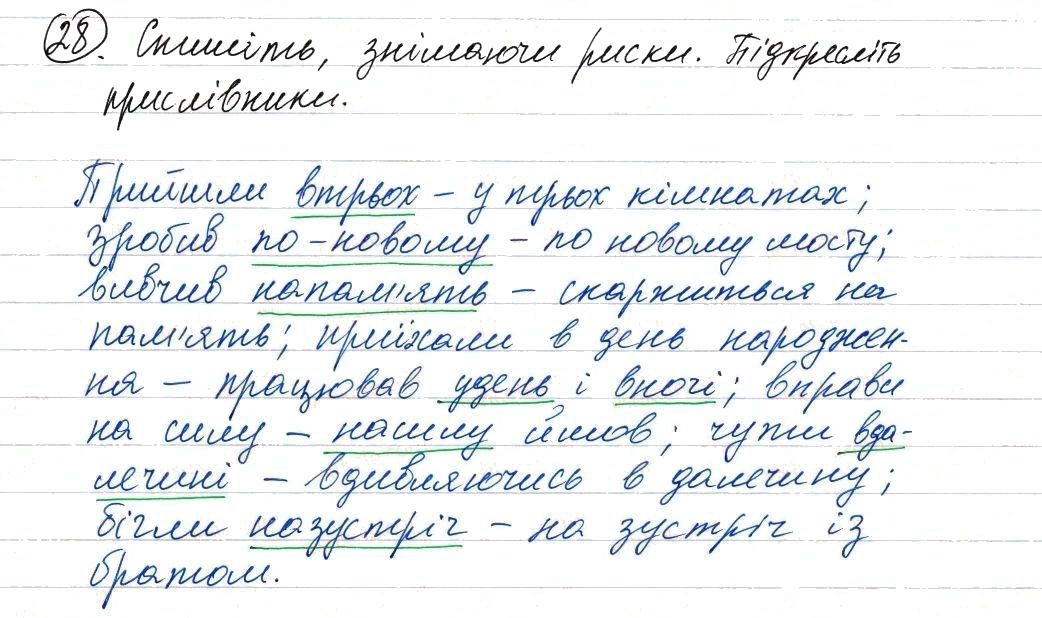 28. Спишіть, знімаючи риски. Підкресліть
прислівники.
Прийшли втрьох – у трьох кімнатах;
зробив по-новому – по новому мосту;
вивчив напам'ять – скаржиться на
пам'ять; приїхали в день народжен-
ня – працював удень і вночі; вправи
на силу – насилу йшов; чути вда-
лечині – вдивляючись в далечину;
бігли назустріч – на зустріч із
братом.